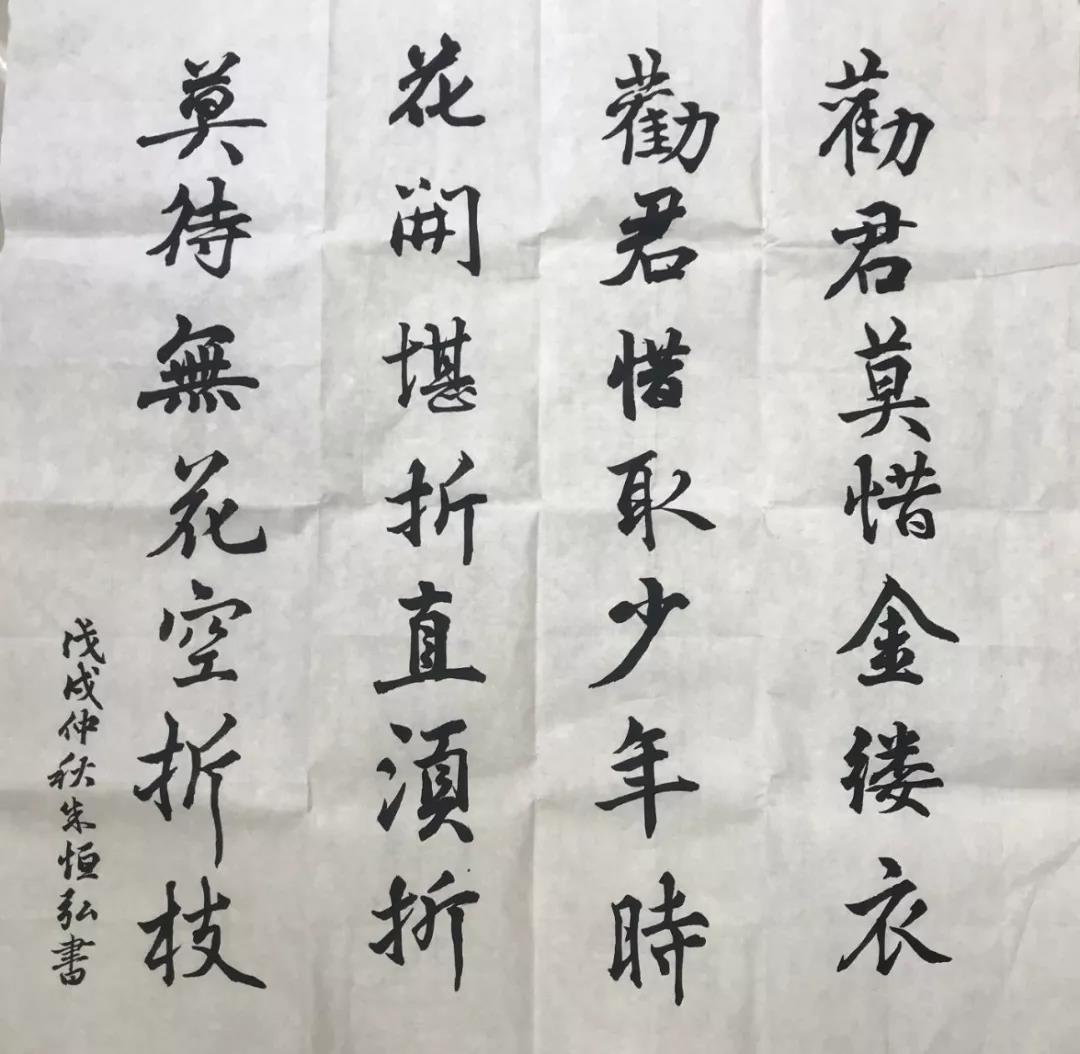 勸君莫惜金缕衣
勸君惜取少年時
花開堪折直須折
莫待無花空折枝
戊戌仲秋朱恒弘書